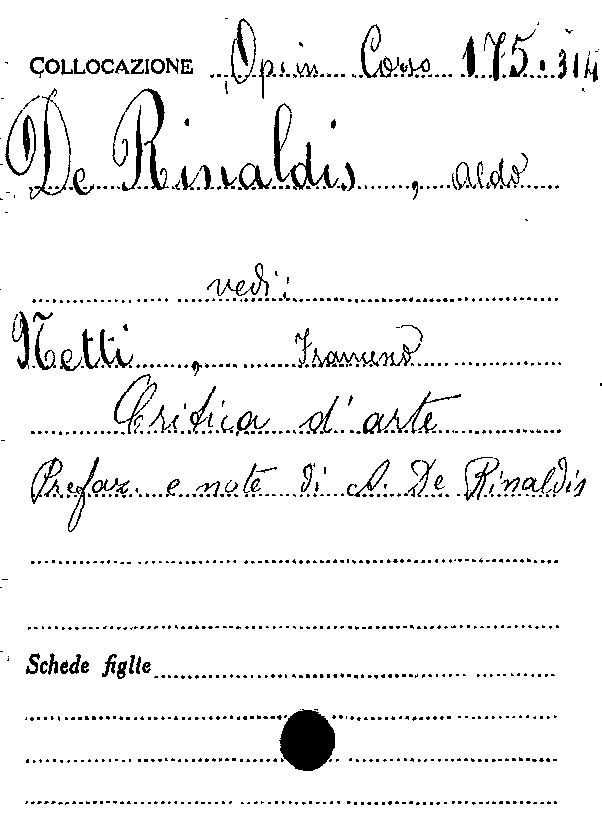 COLLOCAZIONE Op. in Corso 175. 314
De Rinaldis, Aldo
vedi:
Netti, Francesco
Critica d'arte
Prefaz. e note di A. De Rinaldis
Schede figlie